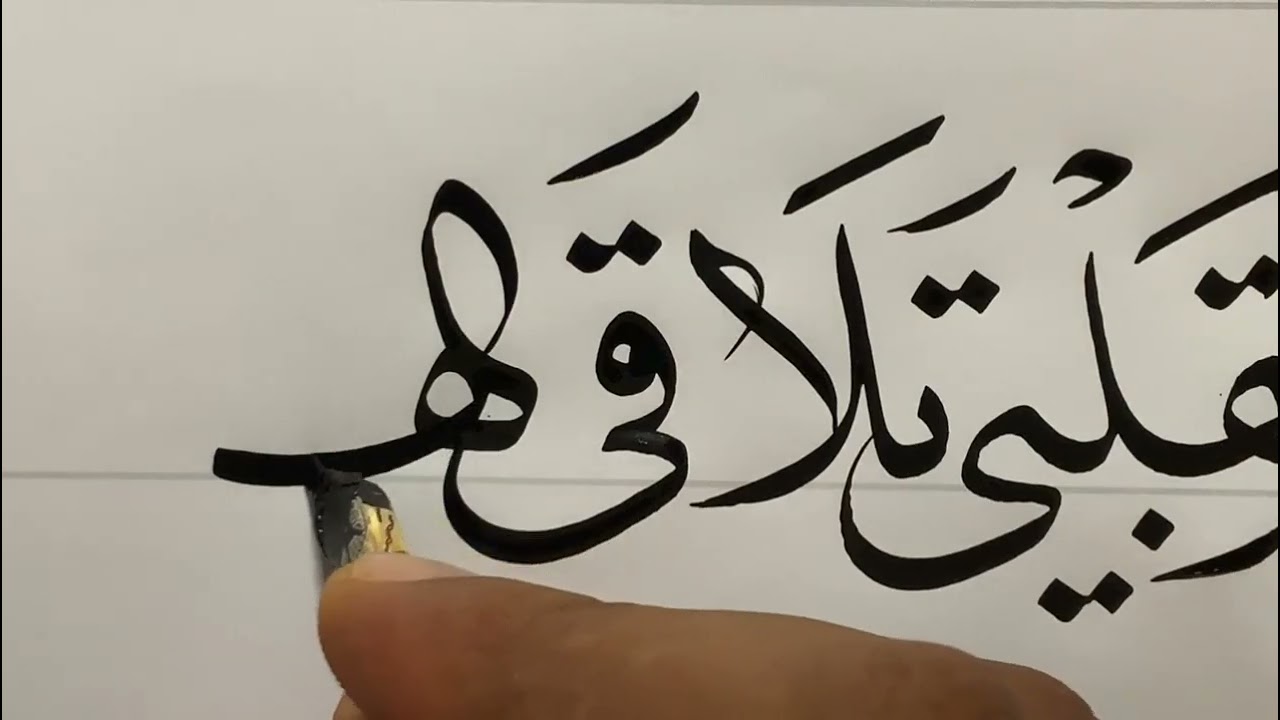 قَلْبي تَلَاقَى هـ